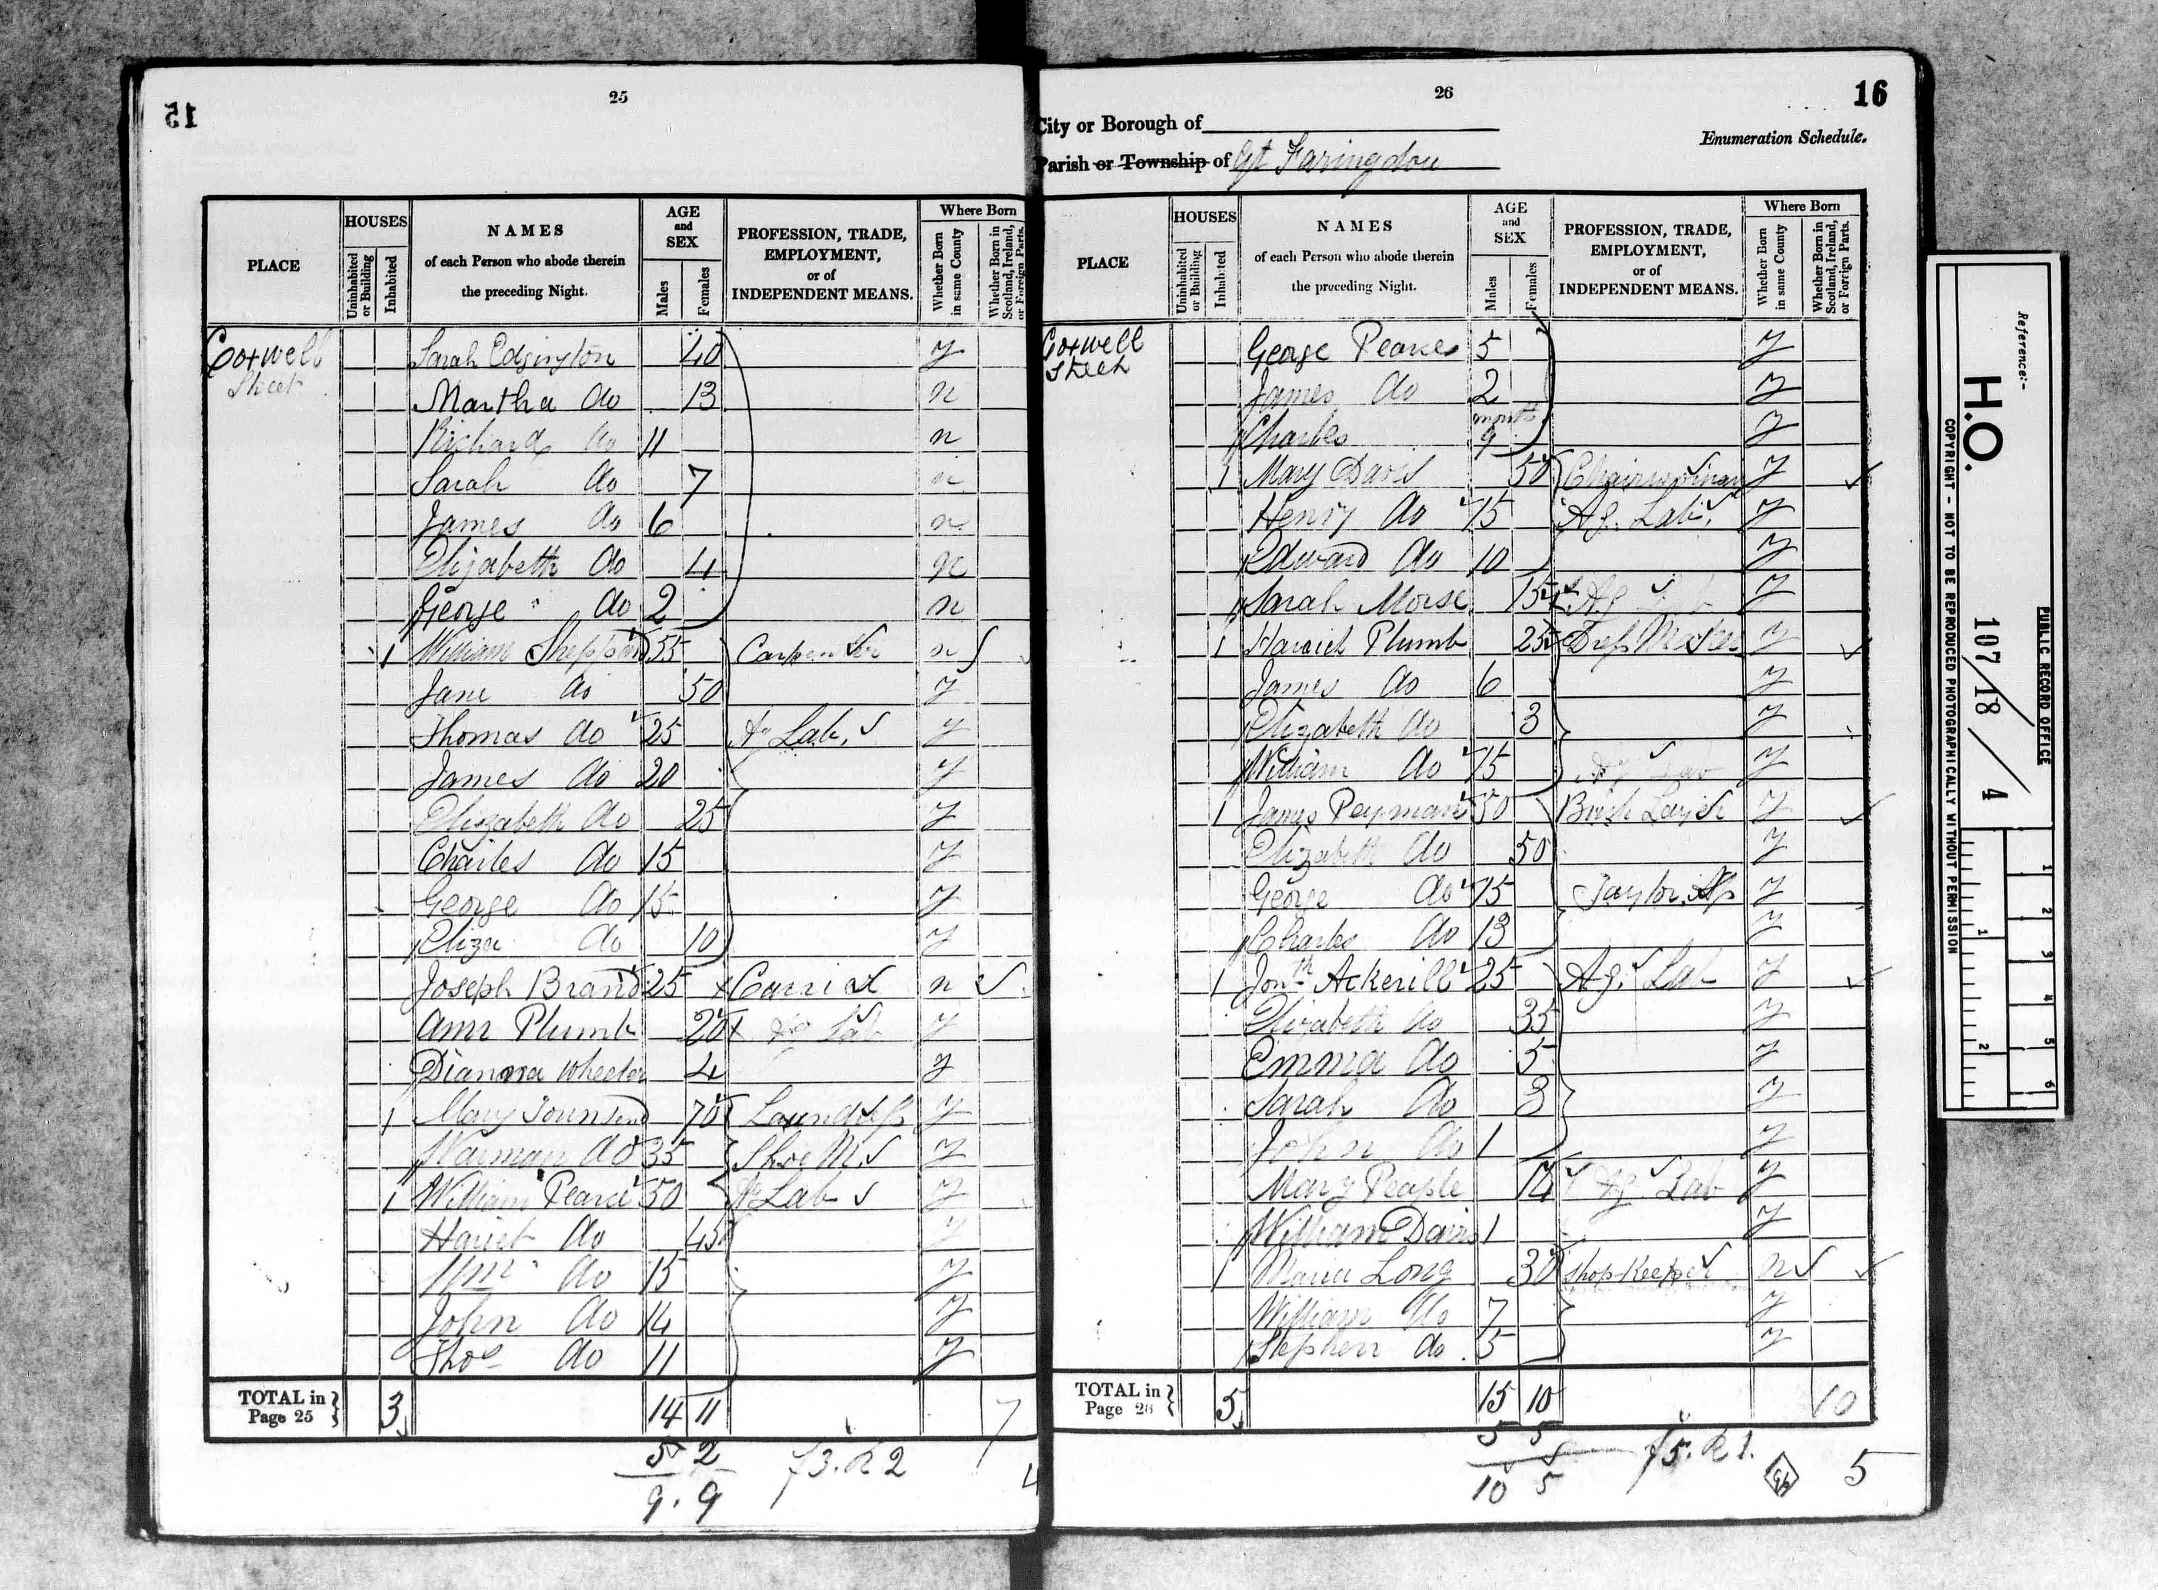 15
25
PLACE
HOUSES
Uninhabited or Building
Inhabited
NAMES
of each Person who abode therein
the preceding Night.
AGE
and
SEX
Males
Females
PROFESSION, TRADE,
EMPLOYMENT,
or of
INDEPENDENT MEANS.
Where Born
Whether Born in same County
Whether Born in Scotland, Ireland, or Foreign Parts.
Coxwell Street Sarah Edgington 40 y
Martha do 13 n
Richard do 11 n
Sarah do 7 n
James do 6 n
Elizabeth do 4 n
George do 2 n
1 William Sheppard 55 Carpenter n
Jane do 50 y
Thomas do 25 Ag Lab. y
James do 20 y
Elizabeth do 25 y
Charles do 15 y
George do 15 y
Eliza do 10 y
Joseph Brand 25 Carrier n
Ann Plumb 20 Ag Lab y
Dianna Wheeler 4 y
1 Mary Townsend 70 Laundress y
Warman do 35 Shoe M. y
1 William Pearce 50 Ag Lab y
Hariet do 45 y
Wm do 15 y
John do 14 y
Thos do 11 y
TOTAL in Page 25 } 3 14 11 7
5 2
9 . 9
f3. R 2
4
26
16
City or Borough of
Enumeration Schedule.
Parish or Township of Gt Faringdon
PLACE
HOUSES
Uninhabited or Building
Inhabited
NAMES
of each Person who abode therein
the preceding Night.
AGE
and
SEX
Males
Females
PROFESSION, TRADE,
EMPLOYMENT,
or of
INDEPENDENT MEANS.
Where Born
Whether Born in same County
Whether Born in Scotland, Ireland, or Foreign Parts.
Coxwell Street George Pearce 5 y
James do 2 y
Charles months 9 y
1 Mary Davis 50 Chairwoman y
Henry do 15 Ag. Lab. y
Edward do 10 y
Sarah Morse 15 Ag Lab y
1 Harriet Plumb 25 Dress Maker y
James do 6 y
Elizabeth do 3 y
William do 15 Ag Lab y
1 James Peyman 50 y
Elizabeth do 50 y
George do 15 Taylor Ap y
Charles do 13 y
1 Jonth Ackerill 25 Ag. Lab y
Elizabeth do 35 y
Emma do 5 y
Sarah do 3 y
John do 1 y
Mary Peaple 14 Ag. Lab y
William Davis 1 y
1 Maria Long 30 Shop Keeper n
William do 7 y
Stephen do 5 y
TOTAL in Page 26 } 5 15 10 10
5 5
10 5
f5. R 1.
5
Reference:-
H.O. 107/18/4
PUBLIC RECORD OFFICE
COPYRIGHT - NOT TO BE REPRODUCED PHOTOGRAPHICALLY WITHOUT PERMISSION
1 2 3 4 5 6
1 2